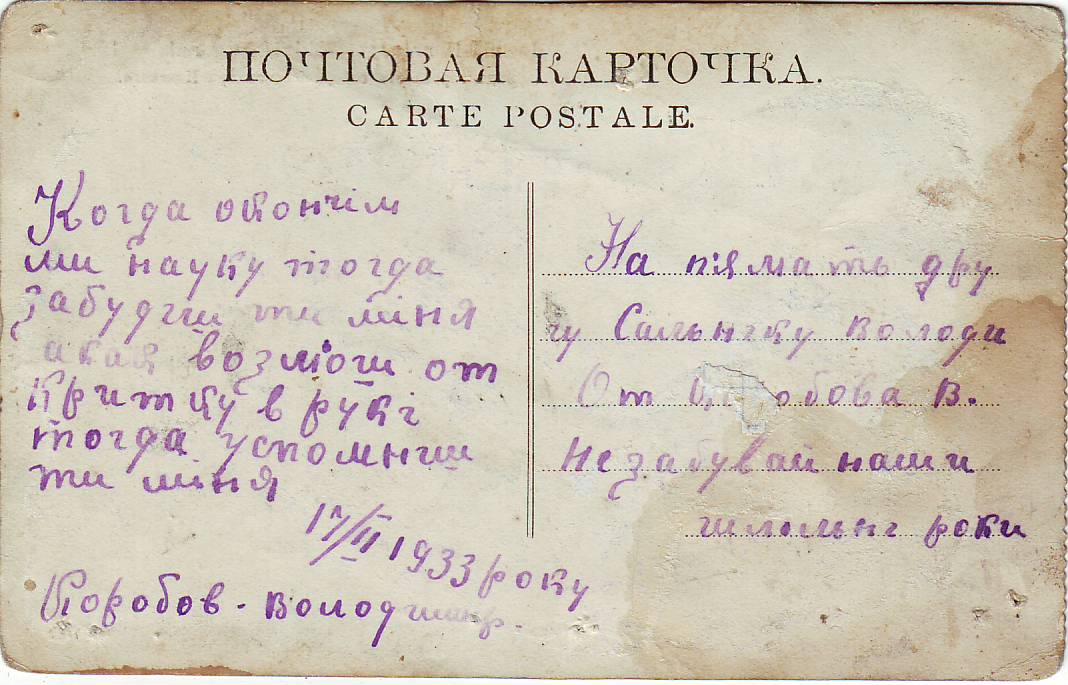 ПОЧТОВАЯ КАРТОЧКА.
CARTE POSTALE.
Когда окончім
ми науку тогда
забудиш ти міня
возмюш от
критку в рукі
тогда успомниш
ти міня
17/II 1933 року
Коробов - Володимир.
На пямать дру
гу Володи
От В.
Не забувай наши
шкільні роки